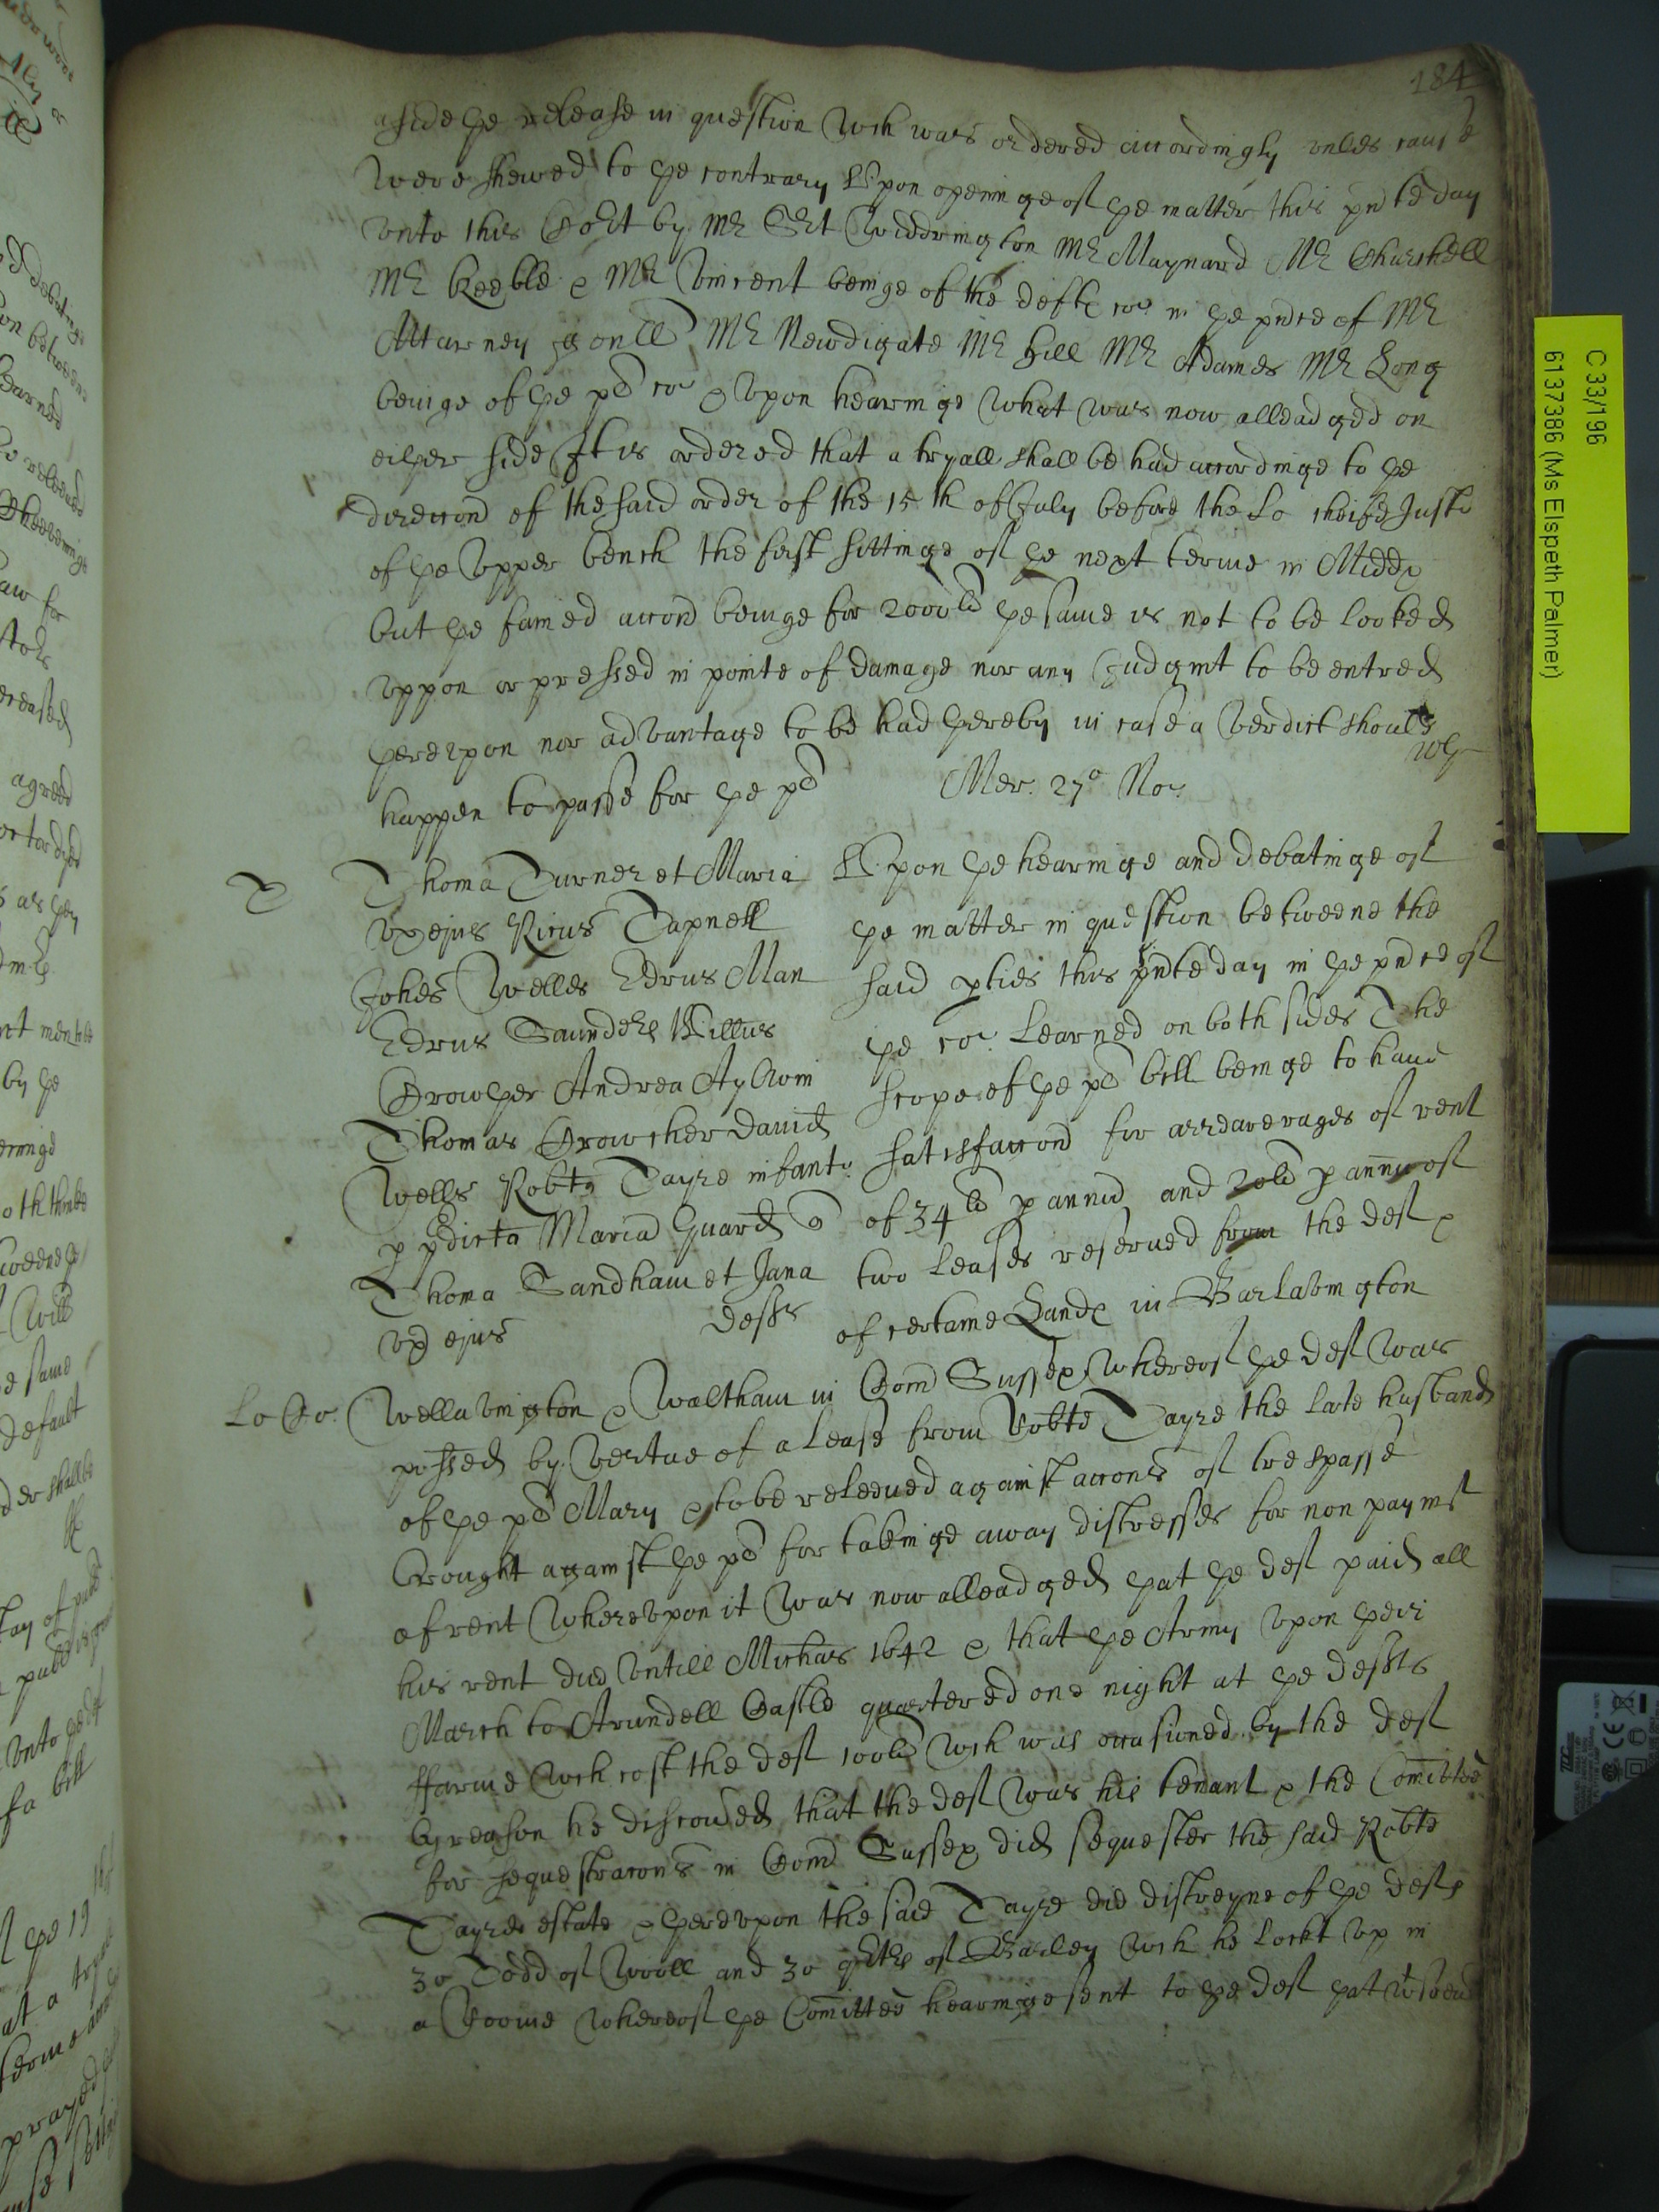 184
aside ye release in question wch was ordered accordingly unles cause
were shewed to ye contrary Upon openinge of ye matter this pnte day
unto this Cort by Mr Srt Widdrington Mr Maynard Mr Churchell
Mr Keeble & Mr Vincent beinge of the defts co: in ye pnce of Mr
Atturney gonll Mr Newdigate Mr Hill Mr Adames Mr Long
beinge of ye pl co: & upon hearinge what was now alleadged on
eiyer side It is ordered that a tryall shall be had accordinge to ye
direccon of the said order of the 15th of July before the Lo cheife Justice
of ye Upper bench the first sittinge of ye next terme in Middx
but ye fained accon beinge for 2000li ye same is not to be looked
uppon or pressed in pointe of damage nor any Judgmt to be entred
yereupon nor advantage to be had yereby in case a verdict should
happen to passe for ye pl
Mer. 27o No:
T
Thoma Turner et Maria
ux ejus Ricus Tapnell
Johes Welles Edrus Man
Edrus Saunders Willus
Crowyer Andrea Aylwin
Thomas Crowcher David
Wells Robte Tayre infant:
p pdicta Maria Guard &
Thoma Sandham et Jana
ux ejus defts
Upon ye hearinge and debatinge of
ye matter in question betweene the
said pties this pnte day in ye pnce of
ye co: learned on both sides The
scope of ye pl bill beinge to have
satisfaccon for arrearerages of rent
of 34li p annu and 20li p annu of
two leases reserved from the def &
of certaine Lands in Barlavington
Lo Co:
Wellavington & Waltham in Com Sussex whereof ye def was
possed by vertue of a lease from Robte Tayre the late husband
of ye pl Mary & to be releeved against accons of trespasse
brought against ye pl for takinge away distresses for non paymt
of rent Whereupon it was now alleadged yat ye def paid all
his rent due untill Michas 1642 & that ye Army upon yeir
March to Arundell Castle quartered one night at ye defts
ffarme wch cost the def 100li wch was occasioned by the def
by reason he discoued that the def was his tenant & the Comittee
for sequestracons in Com Sussex did sequester the said Robte
Tayres estate & yereupon the said Tayre did distreyne of ye defs
30 Todd of Wooll and 30 qrters of Barley wch he lockt up in
a Roome whereof ye Comittee hearinge sent to ye def yat
C 33/196
6137386 (Ms Elspeth Palmer)